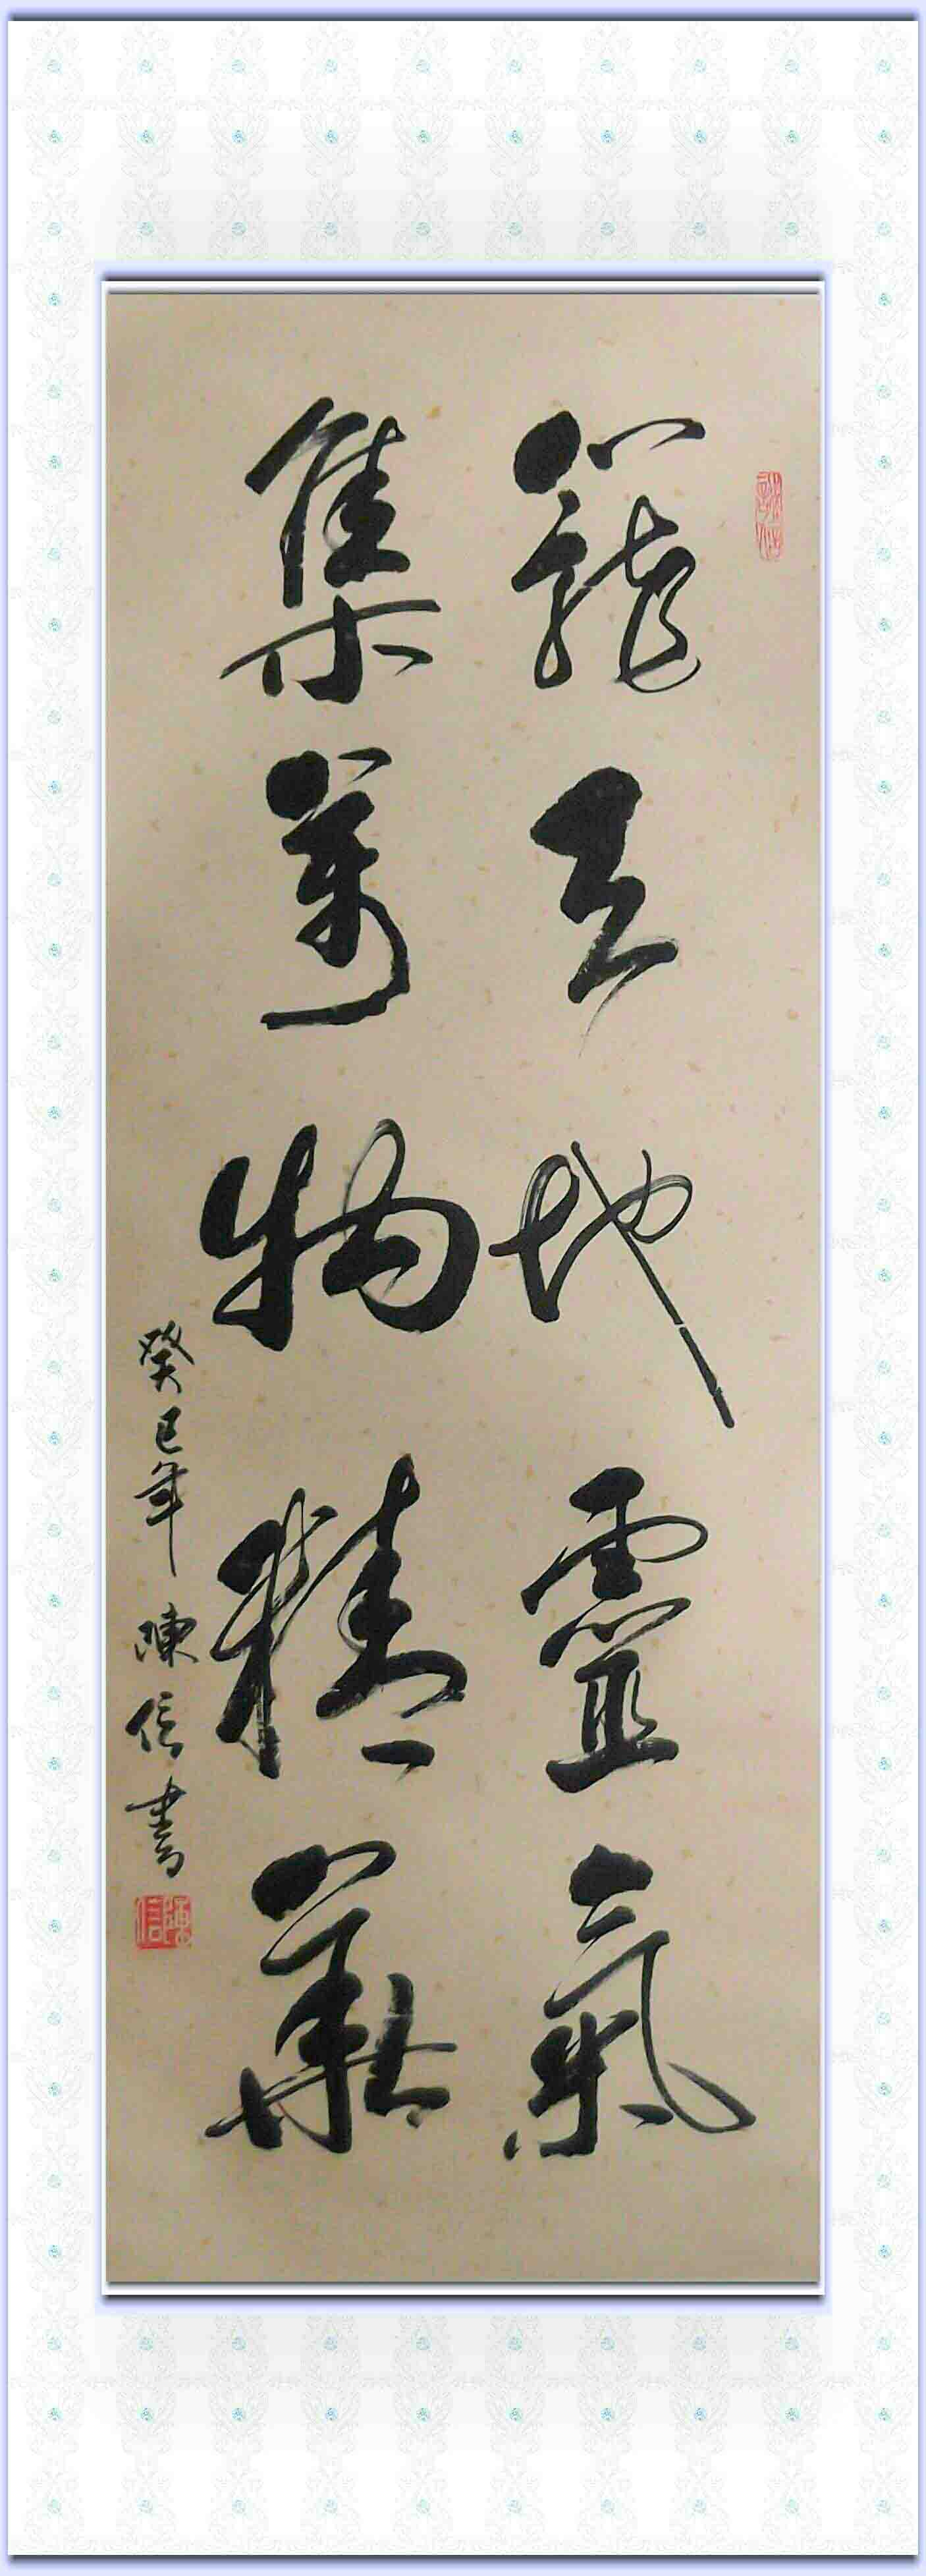 籠天地靈氣
集萬物精華
癸巳年 陳信書
陳信